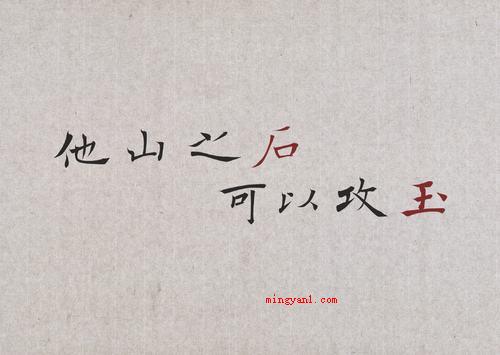 他山之石
可以攻玉
mingyan1.com